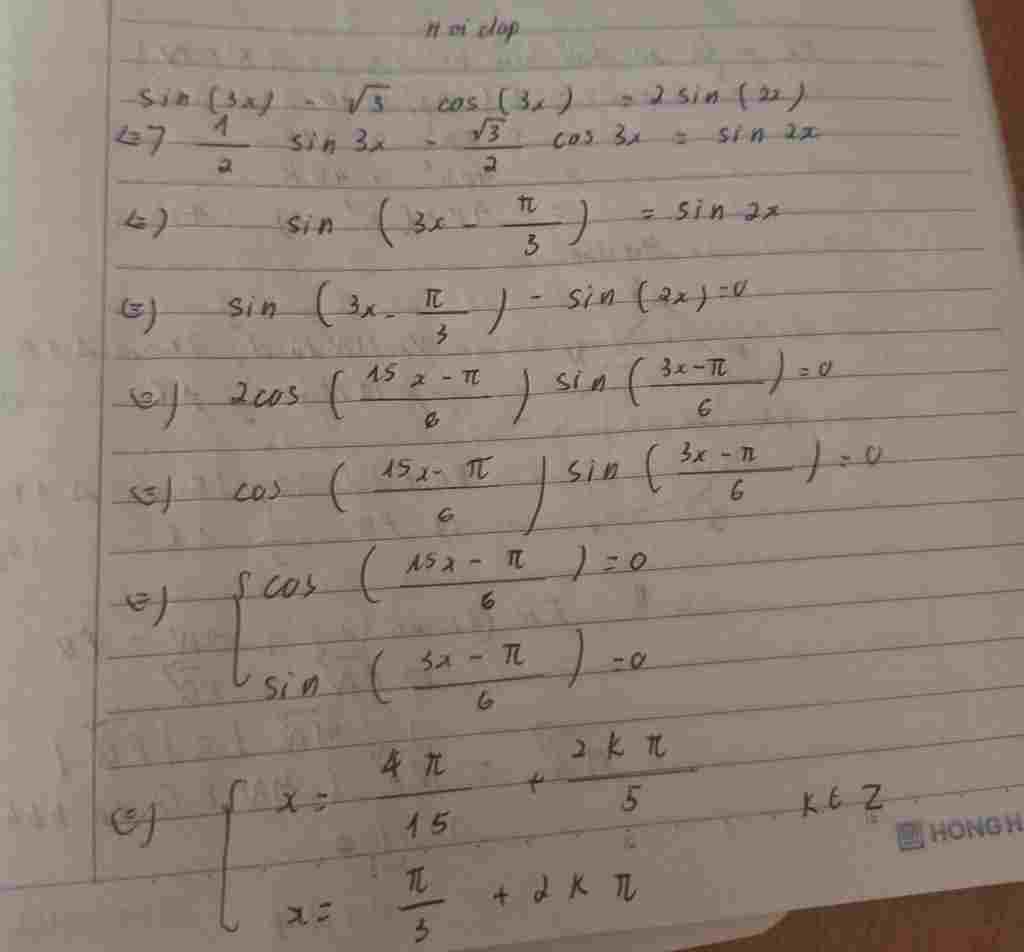 sin (3x) - √3 cos (3x) = 2 sin (2x)
<=> 1/2 sin 3x - √3/2 cos 3x = sin 2x
<=> sin (3x - π/3) = sin 2x
<=> sin (3x - π/3) - sin (2x) = 0
<=> 2cos ((15x - π)/6) sin ((3x - π)/6) = 0
<=> cos ((15x - π)/6) sin ((3x - π)/6) = 0
<=> { cos ((15x - π)/6) = 0
sin ((3x - π)/6) = 0
<=> { x = 4π/15 + 2kπ/5 k ∈ Z
HONG H
x = π/3 + 2kπ